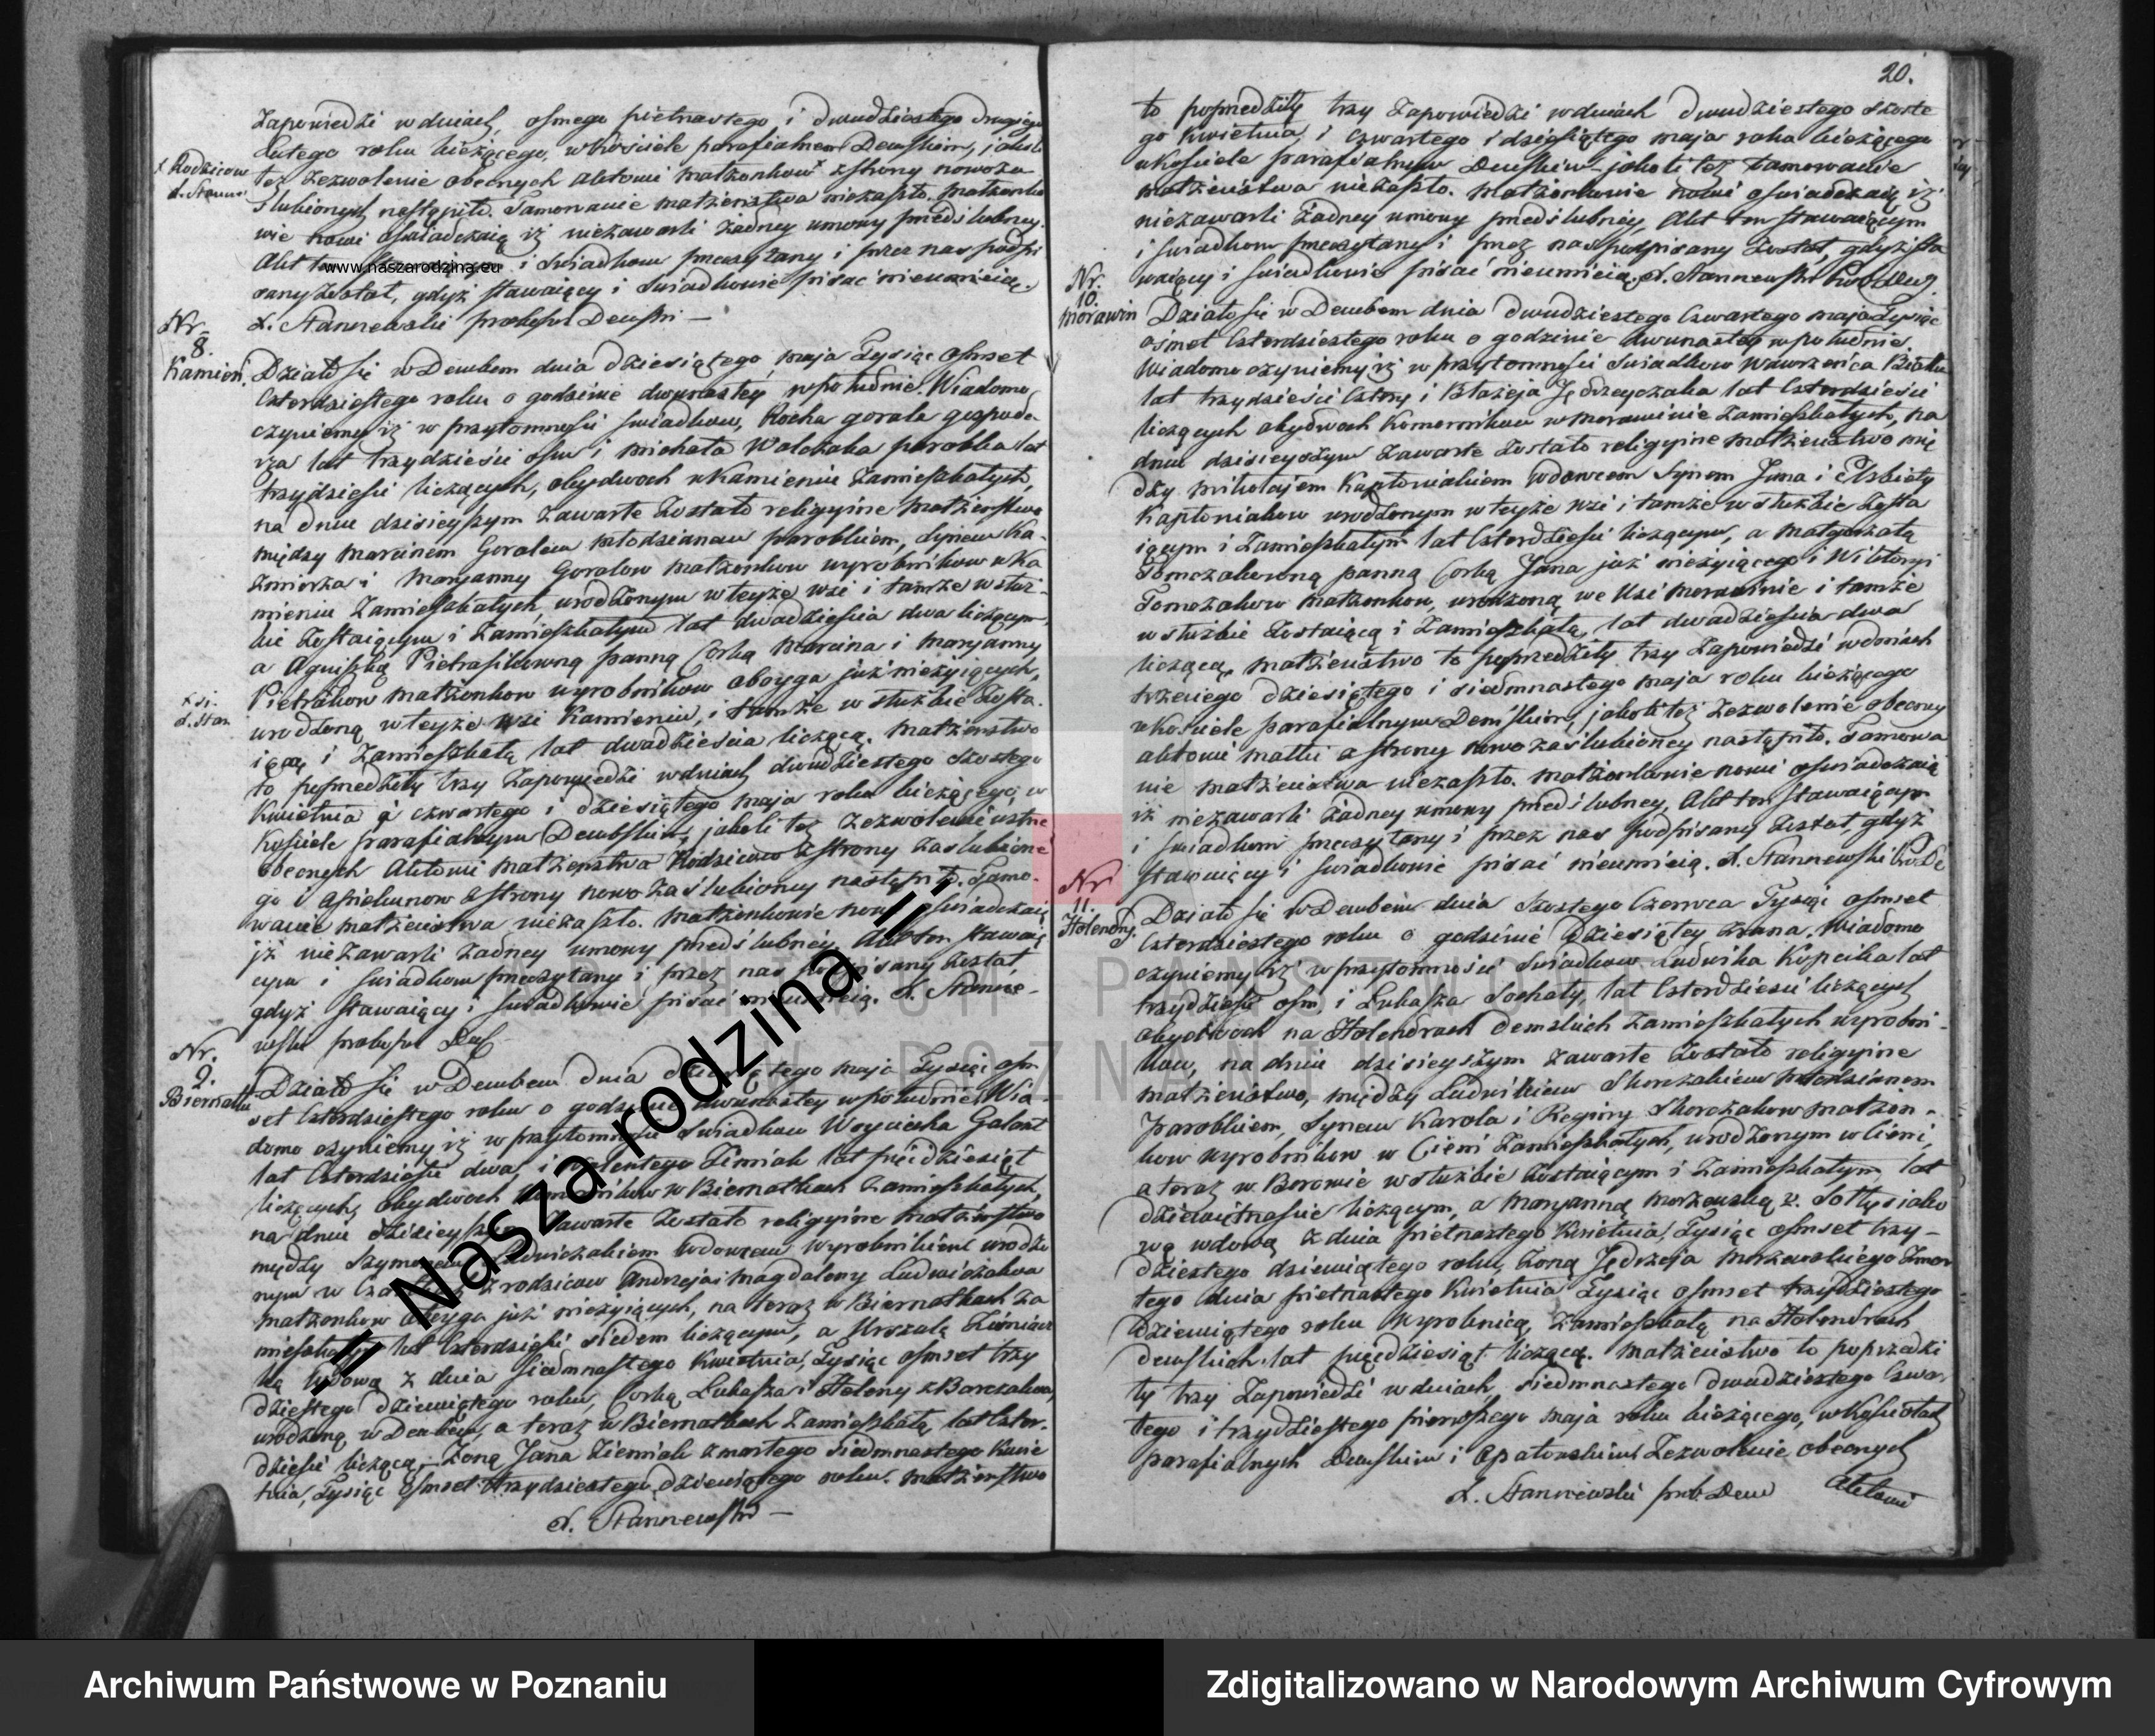 Zapowiedzi w dniach, osmego pietnastego i dwudziestego drugiego
Lutego roku bieżącego, w kościele parafialnem Demskim, jakoli
też Zezwolenie obecnych Aktowi małżonkow x z strony nowoza
slubionych nastąpiło. Tamowanie małżeństwa niezaszło. małżonko
wie nowi oświadczaią iż niezawarli żadney umowy przedslubney.
Akt ten stawaiącym i swiadkom przeczytany i przez nas podpi
sany został, gdyż stawaiący i swiadkowie pisać nieumieią.
x Rodzicow
www.naszarodzina.eu
Nr.
8.
Kamień.
Działo się w Dembem dnia dziesiątego maja Tysiąc osmset
czterdziestego roku o godzinie dwunastey w południe. Wiadomo
czyniemy iż w przytomności swiadkow, Rocha Gorala gospoda
rza lat trzydzieści osm i Michała Walczaka parobka lat
trzydzieści liczących, obydwoch w Kamieniu zamieszkałych,
na dniu dzisieyszym zawarte zostało religyine małżeństwo
między Marcinem Goralem młodzianem parobkiem, synem Ka-
zmierza i Maryanny Goralow małżonkow wyrobnikow w Ka
mieniu zamieszkałych, urodzonym w teyże wsi i tamże w służ-
bie zostaiącym i zamieszkałym lat dwadzieścia dwa liczącym,
a Agniszką Pietrasikowną panną corką Marcina i Maryanny
Pietrasikow małżonkow wyrobnikow oboyga już nieżyiących,
urodzoną w teyże wsi Kamieniu, i tamże w służbie zosta-
iącą i zamieszkałą lat dwadzieścia liczącą. Małżeństwo
to poprzedziły trzy zapowiedzi w dniach dwudziestego szostego
Kwietnia czwartego i dziesiątego maja roku bieżącego, w
Kościele parafialnym Dembskim, jakoli też zezwolenie ustne
obecnych Aktowi małżeństwa Rodzicow z strony zaslubione
go i opiekunow z strony nowo zaślubioney nastąpiło. Tamo-
wanie małżeństwa niezaszło. małżonkowie nowi oświadczaią
iż niezawarli żadney umowy przedślubney. Akt ten stawaią
cym i swiadkom przeczytany i przez nas podpisany został,
gdyż stawaiący i swiadkowie pisać nieumieią.
Nr.
9.
Działo się w Dembem dnia dziesiątego maja Tysiąc osm
set czterdziestego roku o godzinie dwunastey w południe Wia-
domo czyniemy iż w przytomności swiadkow Woyciecha Galant
lat czterdzieści dwa i Walentego Zimiak lat pięćdziesiąt
liczących, obydwoch w Biernatkach zamieszkałych,
na dniu dzisieyszym zawarte zostało religyine małżeństwo
między Szymonem Ludwiczakiem wdowcem wyrobnikiem urodzo
nym w z rodzicow Andrzeja i Magdaleny Ludwiczakow
małżonkow oboyga już nieżyiących, na teraz w Biernatkach za
mieszkałym lat czterdzieści siedem liczącym, a Urszulą
wdową z dnia siedmnastego Kwietnia, Tysiąc osmset trzy
dziestego dziewiątego roku, corką Łukasza i Heleny
urodzoną w Dembem, a teraz w Biernatkach zamieszkałą, lat czter-
dzieści liczącą, Żoną Jana Ziemiak zmarłego siedmnastego Kwie
tnia, Tysiąc osmset trzydziestego dziewiątego roku. małżeństwo
20.
to poprzedziły trzy zapowiedzi w dniach dwudziestego szoste
go Kwietnia, i czwartego i dziesiątego maja roku bieżącego
w kościele parafialnym Demskim jakoli też tamowanie
małżeństwa niezaszło. Małżonkowie nowi oświadczaią iż
niezawarli żadney umowy przedślubney, Akt ten stawaiącym
i swiadkom przeczytany i przez nas podpisany został, gdyż sta
waiący i swiadkowie pisać nieumieią.
Nr.
10.
Morawin
Działo się w Dembem dnia dwudziestego czwartego maja Tysiąc
osmset czterdziestego roku o godzinie dwunastey w południe.
Wiadomo czyniemy iż w przytomności swiadkow Wawrzeńca
lat trzydzieści cztery i Błażeja Jędrzeyczaka lat czterdzieści
liczących obydwoch Komornikow w Morawinie zamieszkałych, na
dniu dzisieyszym zawarte zostało religyine małżeństwo mię
dzy Mikołajem Kaptoniakiem wdowcem synem Jana i Elżbiety
Kaptoniakow urodzonym w teyże wsi i tamże w służbie zosta
iącym i zamieszkałym lat czterdzieści liczącym, a Małgorzatą
Tomczakowną panną corką Jana już nieżyiącego i Wiktoryi
Tomczakow małżonkow, urodzoną we wsi Morawinie i tamże
w służbie zostaiącą i zamieszkałą, lat dwadzieścia dwa
liczącą, małżeństwo to poprzedziły trzy zapowiedzi w dniach
trzeciego dziesiątego i siedmnastego maja roku bieżącego
w Kościele parafialnym Demskim, jakoli też zezwolenie obecny
aktowi matki z strony nowo zaślubioney nastąpiło. Tamowa
nie małżeństwa niezaszło. małżonkowie nowi oświadczaią
iż niezawarli żadney umowy przedślubney, Akt ten stawaiącym
i swiadkom przeczytany i przez nas podpisany został, gdyż
stawaiący i swiadkowie pisać nieumieią.
Nr
11.
Holendry.
Działo się w Dembem dnia szostego Czerwca Tysiąc osmset
czterdziestego roku o godzinie dziesiątey zrana. Wiadomo
czyniemy iż w przytomności swiadkow Ludwika Kopcika lat
trzydzieści osm, i Łukasza Sochaty, lat czterdzieści liczących
obydwoch na Holendrach Demskich zamieszkałych wyrobni-
kow, na dniu dzisieyszym zawarte zostało religyine
małżeństwo, między Ludwikiem Skorczakiem młodzianem
parobkiem, synem Karola i Reginy Skorczakow małżon-
kow wyrobnikow w Cieni zamieszkałych, urodzonym w Cieni,
a teraz w Borowie w służbie zostaiącym i zamieszkałym lat
dziewiętnaście liczącym, a Maryanną Morzewską z Sołtysiako
wą wdową z dnia pietnastego Kwietnia, Tysiąc osmset trzy-
dziestego dziewiątego roku, żoną Jędrzeja Morzewskiego zmar
łego dnia pietnastego Kwietnia Tysiąc osmset trzydziestego
dziewiątego roku wyrobnicą, zamieszkałą na Holendrach
demskich lat pięćdziesiąt liczącą. Małżeństwo to poprzedzi
ły trzy Zapowiedzi w dniach, siedmnastego dwudziestego czwar
tego i trzydziestego pierwszego maja roku bieżącego, w kościołach
parafialnych Demskim i Opatowskim Zezwolenie obecnych
Aktowi
= Nasza rodzina =
ARCHIWUM PAŃSTWOWE
W POZNANIU
Archiwum Państwowe w Poznaniu
Zdigitalizowano w Narodowym Archiwum Cyfrowym